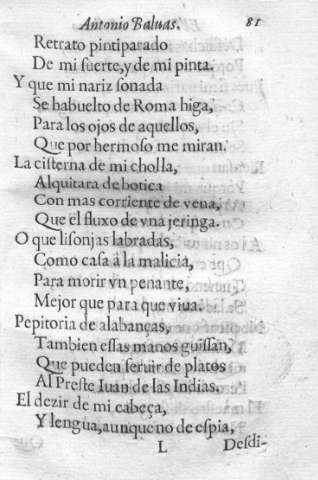 Antonio Baluas. 81
Retrato pintiparado
De mi suerte, y de mi pinta.
Y que mi nariz sonada
Se habuelto de Roma higa,
Para los ojos de aquellos,
Que por hermoso me miran.
La cisterna de mi cholla,
Alquitara de botica
Con mas corriente de vena,
Que el fluxo de vna jeringa.
O que lisonjas labradas,
Como casa à la malicia,
Para morir vn penante,
Mejor que para que viua.
Pepitoria de alabanças,
Tambien essas manos guisan,
Que pueden seruir de platos
Al Preste Iuan de las Indias.
El dezir de mi cabeça,
Y lengua, aunque no de espia,
L Desdi-